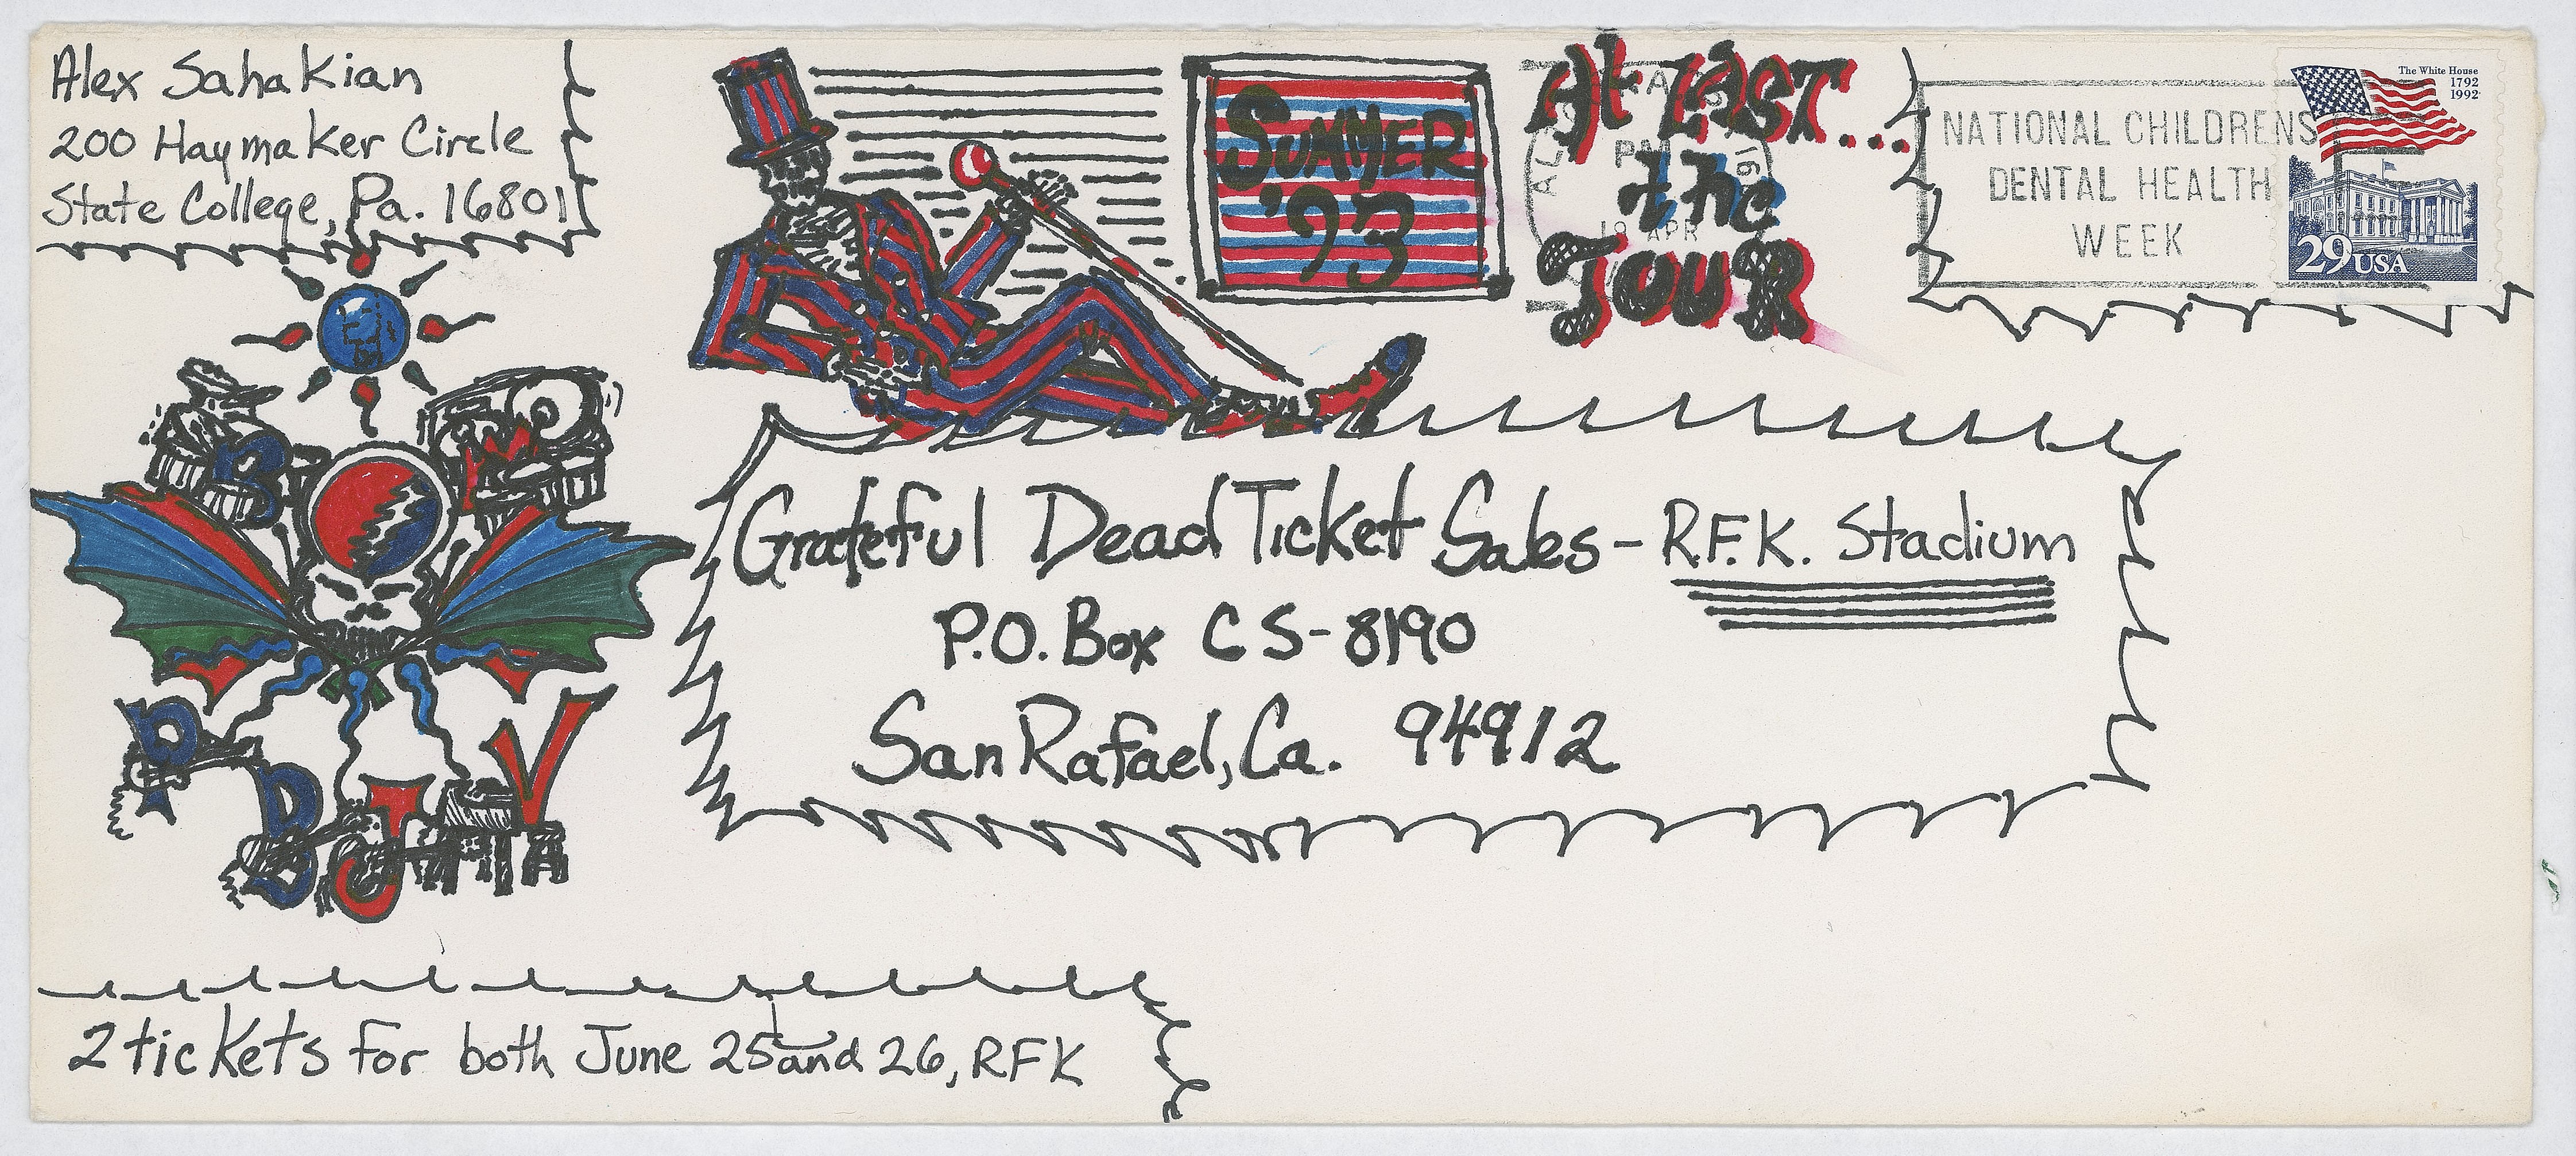 Alex Sahakian
200 Haymaker Circle
State College, Pa. 16801
SUMMER
'93
At LAST...
the
TOUR
PM
19 APR
NATIONAL CHILDRENS
DENTAL HEALTH
WEEK
The White House
1792
1992
29 USA
B
M
P
B
J
V
Grateful Dead Ticket Sales - R.F.K. Stadium
P.O. Box CS-8190
San Rafael, Ca. 94912
2 tickets for both June 25 and 26, RFK